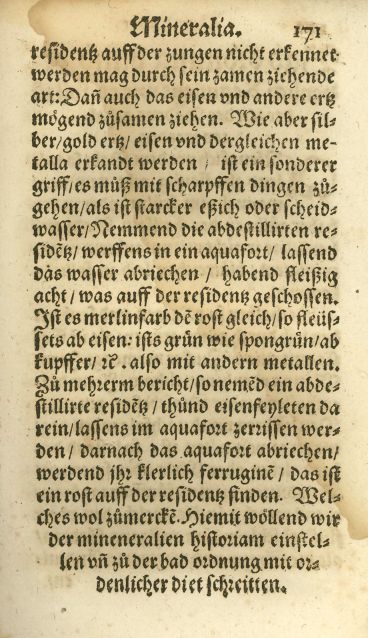 Mineralia. 171
residentz auff der zungen nicht erkennet
werden mag durch sein zamen ziehende
art: Dañ auch das eisen vnd andere ertz
mögend zůsamen ziehen. Wie aber sil-
ber/gold ertz/ eisen vnd dergleichen me-
talla erkandt werden / ist ein sonderer
griff/es můß mit scharpffen dingen zů-
gehen/als ist starcker eßich oder scheid-
wasser/Nemmend die abdestillirten re-
sidētz/ werffens in ein aquafort/ lassend
das wasser abriechen / habend fleißig
acht/ was auff der residentz geschossen.
Ist es merlinfarb dē rost gleich/so fleüs-
sets ab eisen: ists grün wie spongrün/ab
kupffer/ ꝛc̄. also mit andern metallen.
Zů mehrerm bericht/so nemēd ein abde-
stillirte residētz / thůnd eisenfeyleten da
rein/lassens im aquafort zerrissen wer-
den/ darnach das aquafort abriechen/
werdend jhr klerlich ferruginē/ das ist
ein rost auff der residentz finden. Wel-
ches wol zůmerckē. Hiemit wöllend wir
der mineneralien historiam einstel-
len vñ zů der bad ordnung mit or-
denlicher diet schreitten.